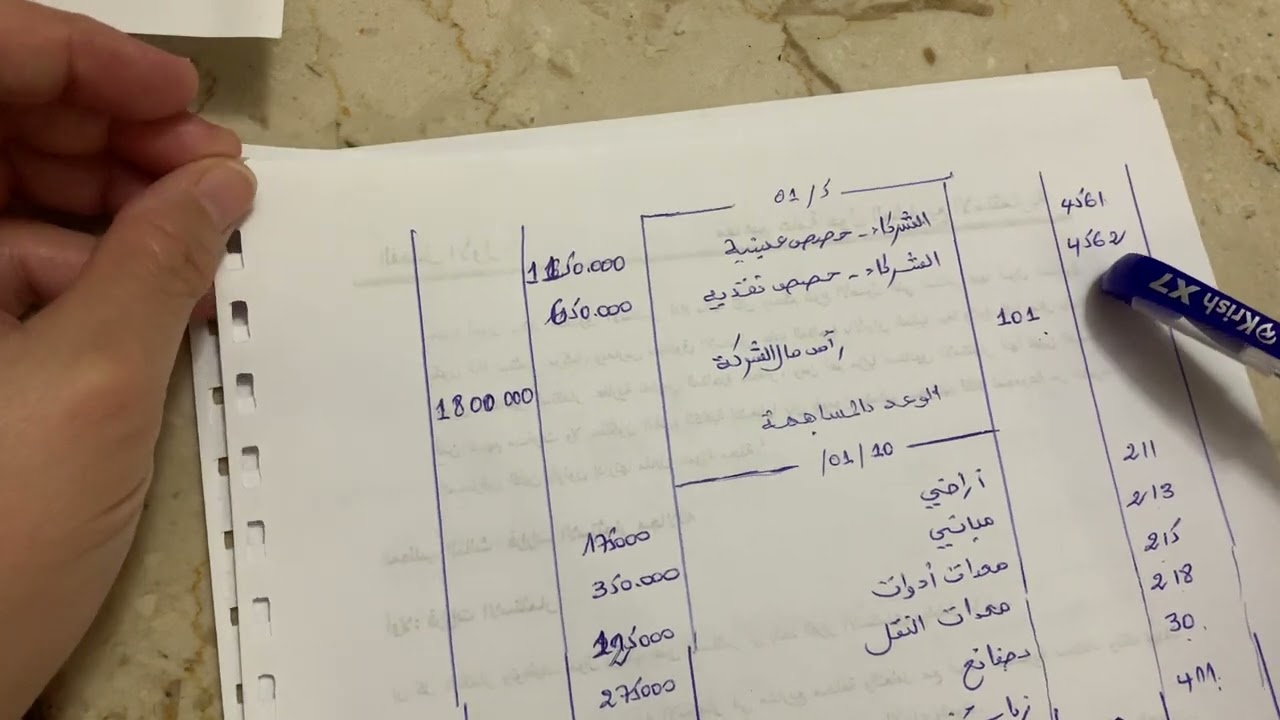 01/5
4561 الشركاء - حصص عينية 1150.000
4562 الشركاء - حصص نقدية 650.000
101 رأس مال الشركة 1800000
الوعد بالمساهمة
01/10/
211 أراضي 175000
213 مباني 350.000
215 معدات أدوات
218 معدات النقل 275000
30 بضائع
411
Krish X7